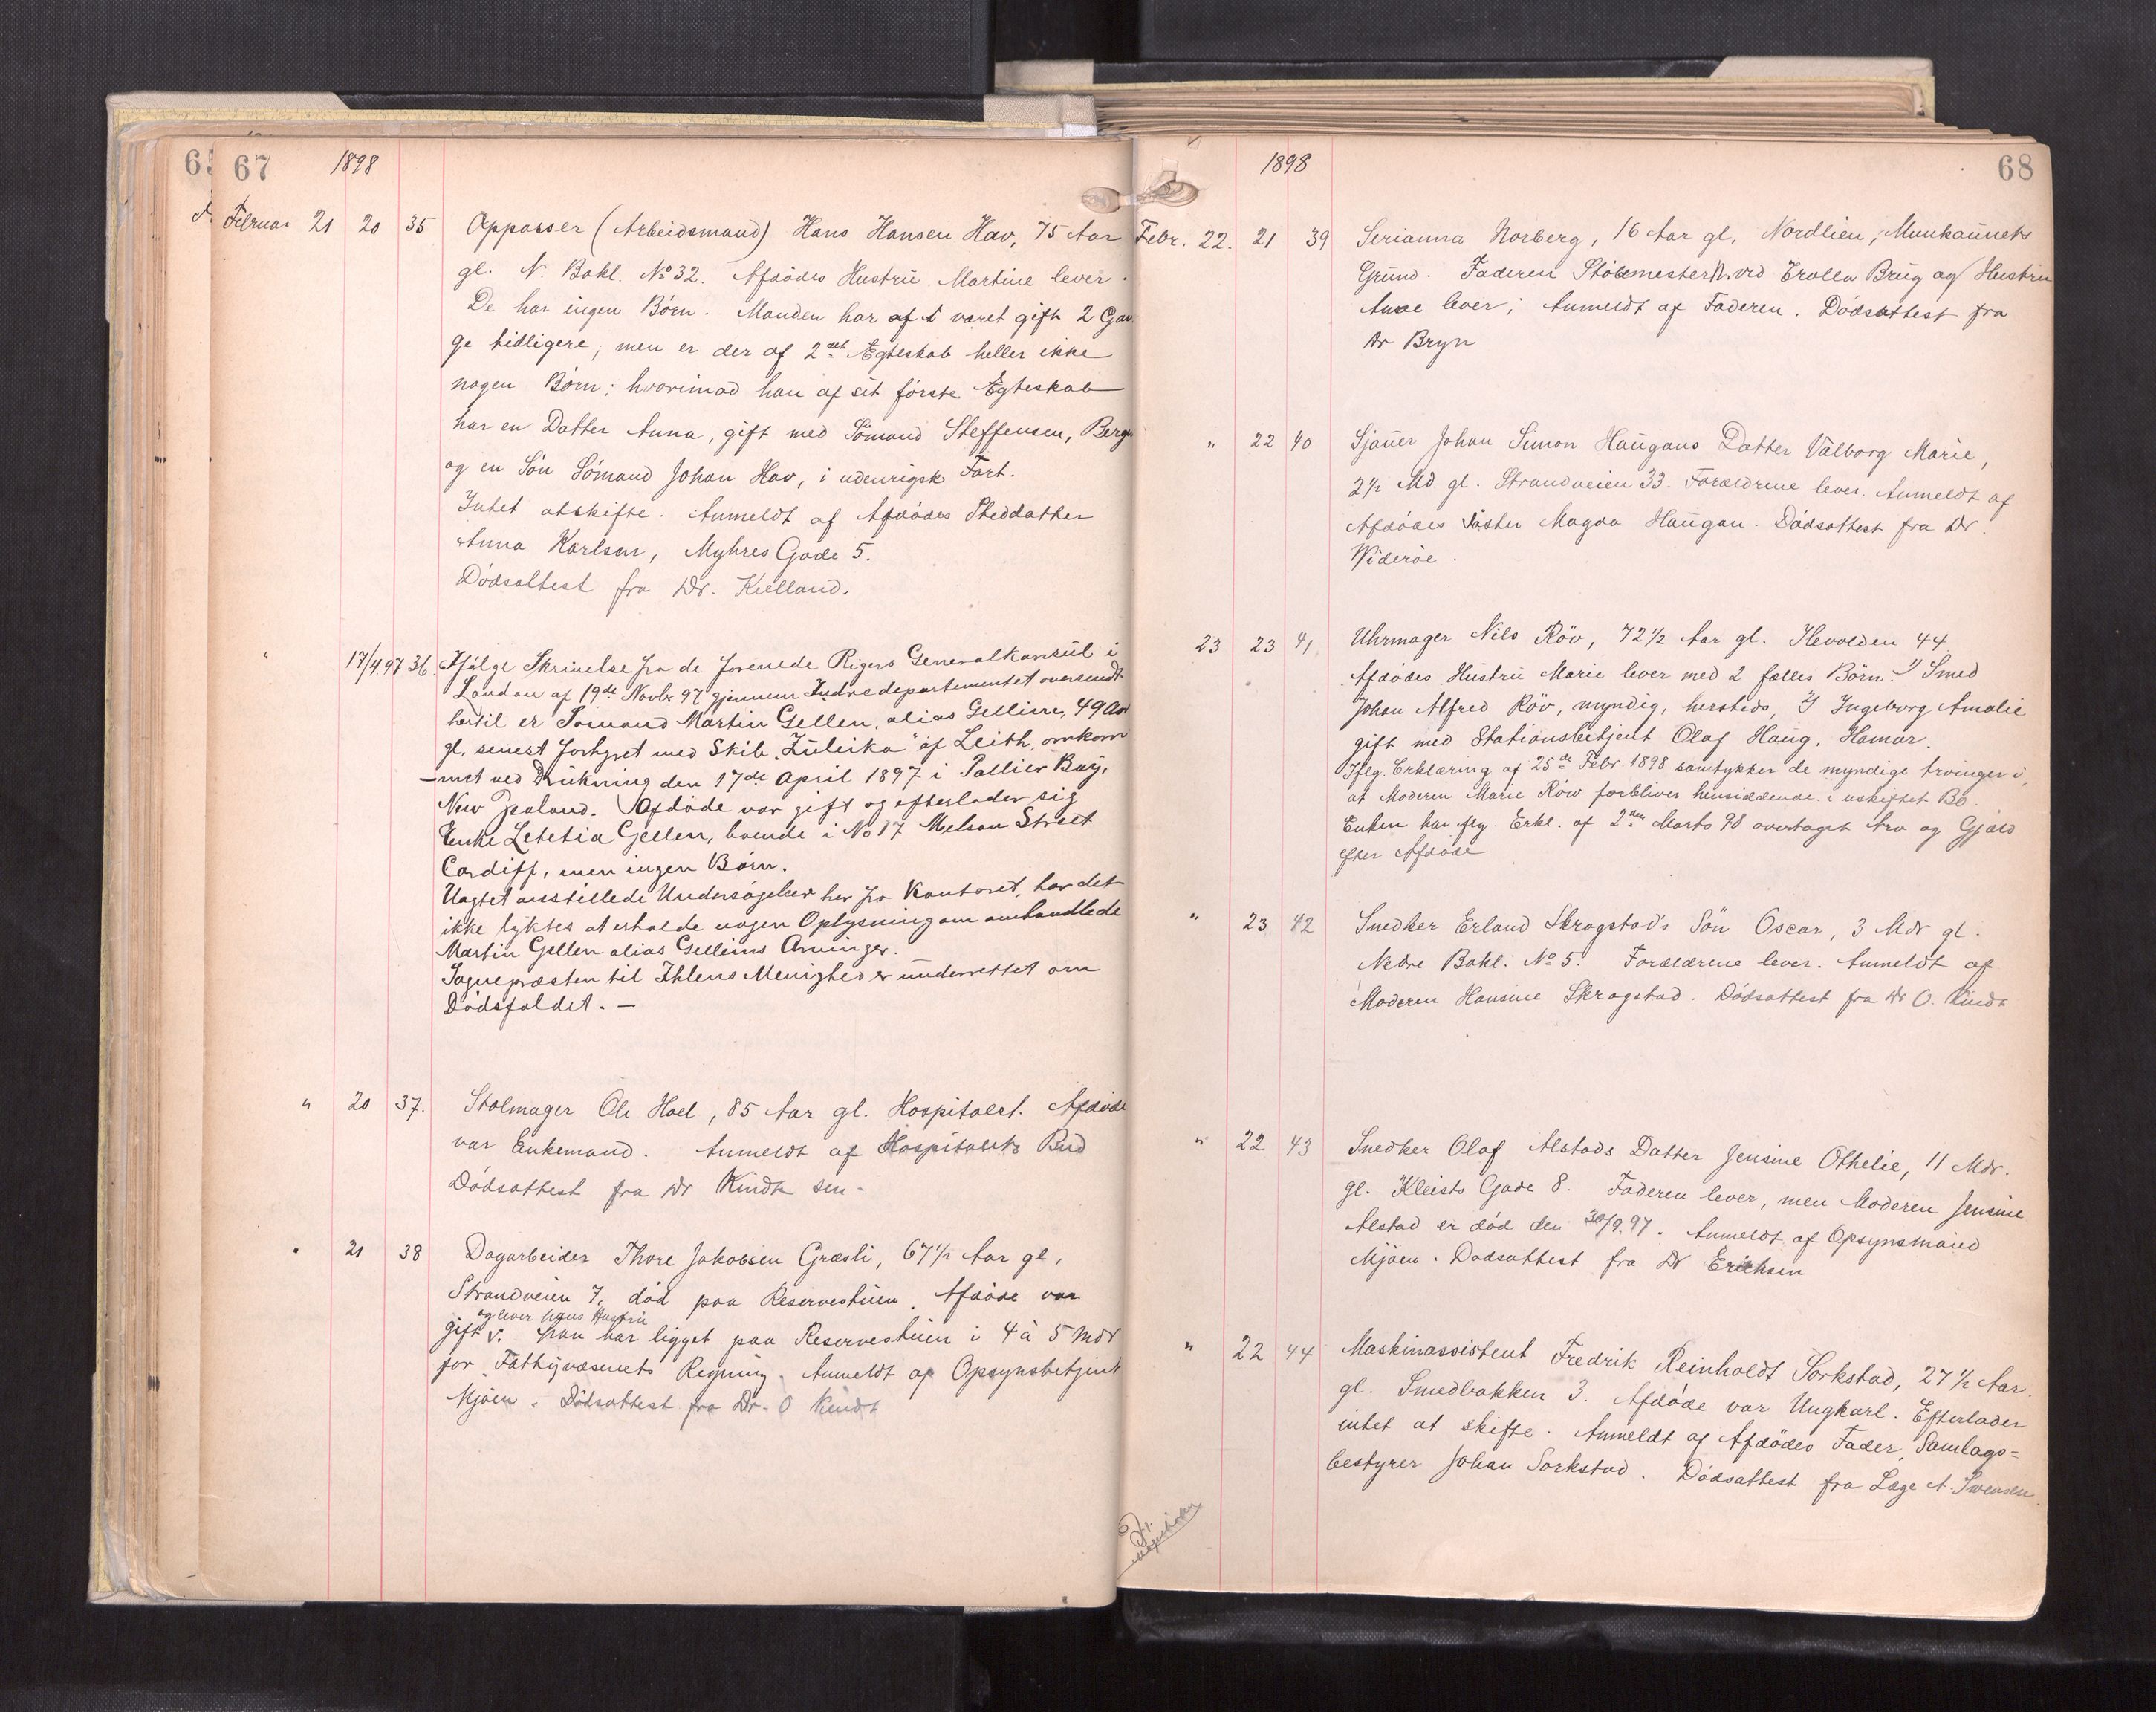 67 1898
Februar 21 20 35 Oppasser (Arbeidsmand) Hans Hansen Hav, 75 Aar
gl. N. Bakl. No 32. Afdödes Hustru Martine lever.
De har ingen Börn. Manden har været gift 2 Gan
ge tidligere; men er der af 2det Ægteskab heller ikke
nogen Börn; hvorimod han af sit förste Egteskab
har en Datter Anna, gift med Sömand Steffensen, Bergen
og en Sön Sömand Johan Hav, i udenrigsk Fart.
Intet atskifte. Anmeldt af Afdödes Steddatter
Anna Karlsen, Myhres Gade 5.
Dödsattest fra Dr. Kielland.
" 17/4 97 36. Ifölge Skrivelse fra de forenede Rigers Generalkonsul i
London af 19de Novbr 97 gjennem Indredepartementet oversendt
hertil er Sömand Martin Gellen, alias Gelline, 49 Aar
gl, senest forhyret med Skib "Zuleika" af Leith, omkom
-met ved Drukning den 17de April 1897 i Pallier Bay,
New Zealand. Afdöde var gift og efterlader sig
Enke Letetia Gellen, boende i No 17 Nelson Street
Cardiff, men ingen Börn.
Uagtet anstillede Undersögelser her fra Kontoret, har det
ikke lyktes at erholde nogen Oplysning om omhandlede
Martin Gellen alias Gellins Arvinger.
Sognepræsten til Ihlens Menighed er underrettet om
Dödsfaldet. —
" 20 37. Stolmager Ole Hoel, 85 Aar gl. Hospitalet. Afdöde
var Enkemand. Anmeldt af Hospitalets Bud
Dödsattest fra Dr Kindt sen.
" 21 38 Dagarbeider Thore Jakobsen Græsli, 67 1/2 Aar gl,
Strandveien 7, död paa Reservestuen. Afdöde var
og lever hans Hustru
gift v. han har ligget paa Reservestuen i 4 à 5 Mdr
for Fattigvæsenets Regning. Anmeldt af Opsynsbetjent
Mjöen. Dödsattest fra Dr. O Kindt
1898 68
Febr. 22. 21 39 Serianna Norberg, 16 Aar gl, Nordlien, Munkaunets
Grund. Faderen Stöbemester N. ved Trolla Brug og Hustru
Anne lever; Anmeldt af Faderen. Dödsattest fra
Dr Bryn
" 22 40 Sjauer Johan Simon Haugans Datter Valborg Marie,
2 1/2 Md. gl. Strandveien 33. Forældrene lever. Anmeldt af
Afdödes Söster Magda Haugan. Dödsattest fra Dr.
Wideröe.
23 23 41 Uhrmager Nils Röv, 72 1/2 Aar gl. Ilevolden 44
Afdödes Hustru Marie lever med 2 fælles Börn: 1) Smed
Johan Alfred Röv, myndig, hersteds, 2) Ingeborg Amalie
gift med Stationsbetjent Olaf Haug, Hamar.
Iflg. Erklæring af 25de Febr. 1898 samtykker de myndige Arvinger i,
at Moderen Marie Röv forbliver hensiddende i uskiftet Bo.
Enken har flg. Erkl. af 2den Marts 98 overtaget Arv og Gjæld
efter Afdöde
" 23 42 Snedker Erland Skrogstad's Sön Oscar, 3 Mdr gl.
Nedre Bakl. No 5. Forældrene lever. Anmeldt af
Moderen Hansine Skrogstad. Dödsattest fra Dr O. Kindt
" 22 43 Snedker Olaf Alstads Datter Jensine Othelie, 11 Mdr.
gl. Kleists Gade 8. Faderen lever, men Moderen Jensine
Alstad er död den 30/9.97. Anmeldt af Opsynsmand
Mjöen. Dödsattest fra Dr Erichsen
" 22 44 Maskinassistent Fredrik Reinholdt Sorkstad, 27 1/2 Aar.
gl. Smedbakken 3. Afdöde var Ungkarl. Efterlader
intet at skifte. Anmeldt af Afdödes Fader, Samlags=
bestyrer Johan Sorkstad. Dödsattest fra Læge A. Swensen.